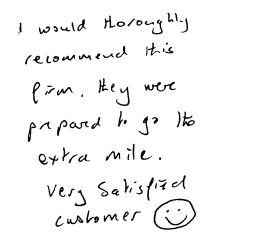 I would thoroughly
recommend this
firm. they were
prepared to go the
extra mile.
Very Satisfied
customer